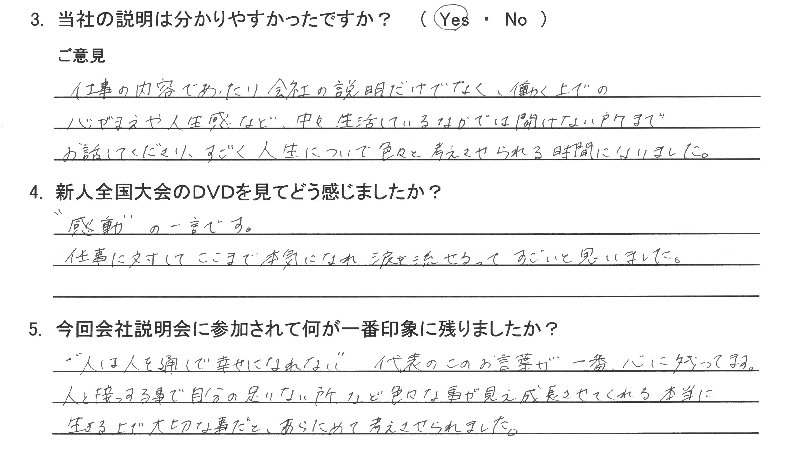 3. 当社の説明は分かりやすかったですか? ( Yes ・ No )
ご意見
仕事の内容であったり会社の説明だけでなく、働く上での
心がまえや人生感など、中々生活しているなかでは聞けない所まで
お話してくださり、すごく人生について色々と考えさせられる時間になりました。
4. 新人全国大会のDVDを見てどう感じましたか?
"感動"の一言です。
仕事に対してここまで本気になれ涙を流せるってすごいと思いました。
5. 今回会社説明会に参加されて何が一番印象に残りましたか?
"人は人を通して幸せになれない" 代表のこのお言葉が一番、心に残ってます。
人と接っする事で自分の足りない所など色々な事が見え成長させてくれる本当に
生きる上で大切な事だと、あらためて考えさせられました。